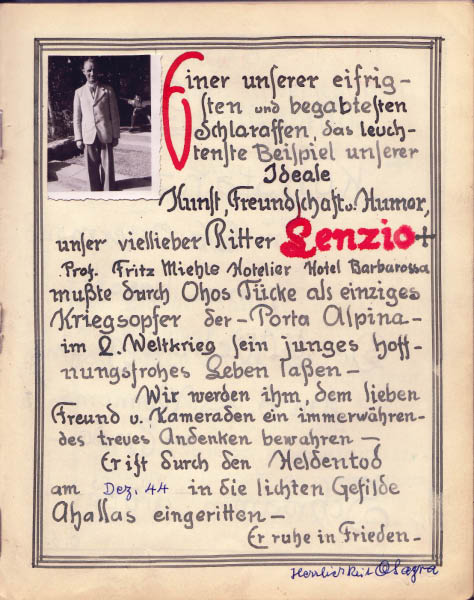 Einer unserer eifrig-
sten und begabtesten
Schlaraffen, das leuch-
tenste Beispiel unserer
Ideale
Kunst, Freundschaft u. Humor,
unser viellieber Ritter Lenzio +
Prof. Fritz Miehle Hotelier Hotel Barbarossa
mußte durch Ohos Tücke als einziges
Kriegsopfer der - Porta Alpina -
im 2. Weltkrieg sein junges hoff-
nungsfrohes Leben laßen -
Wir werden ihm, dem lieben
Freund u. Kameraden ein immerwähren-
des treues Andenken bewahren -
Er ist durch den Heldentod
am Dez. 44 in die lichten Gefilde
Ahallas eingeritten -
Er ruhe in Frieden -